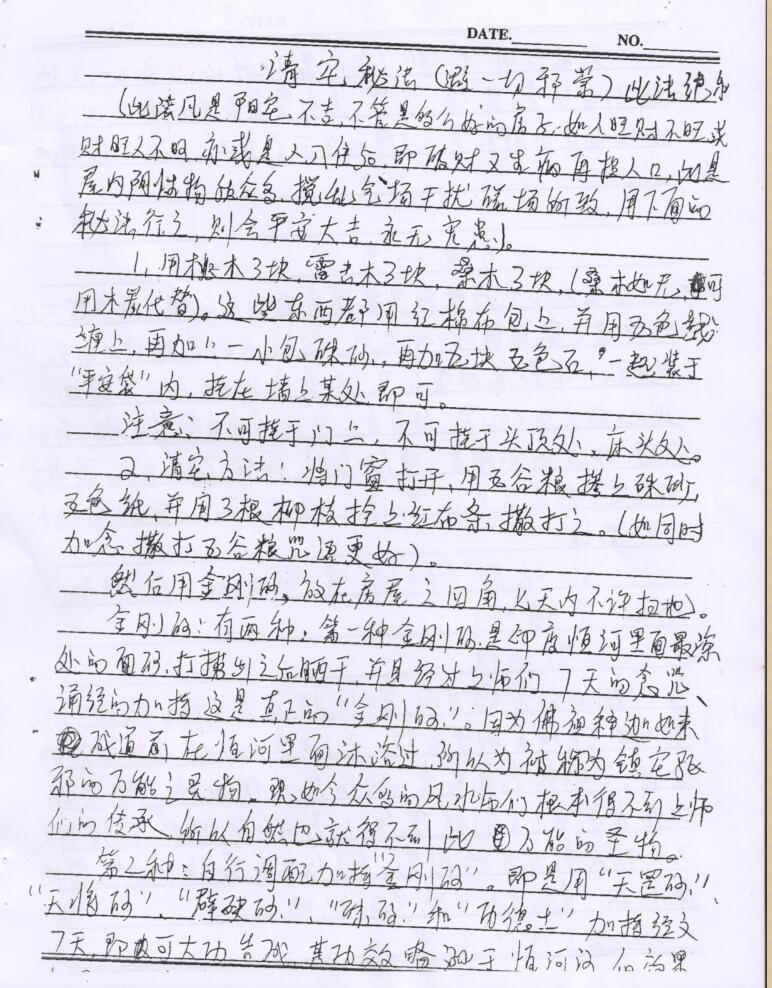 DATE. NO.
清宅秘法（避一切邪祟）此法绝
（此法凡是阳宅不吉不管是多么好的房子，如人旺财不旺或
财旺人不旺亦或是人入住后即破财又生病再损人口，此是
屋内阴性物放众多，搅乱气场干扰磁场所致，用下面的
秘法行之，则会平安大吉永无灾患）。
1，用桃木3块，雷击木3块，桑木3块，（桑木如无，可
用木炭代替）。这些东西都用红棉布包上，并用五色线
缠上，再加上一小包硃砂，再加五块五色石，一起装于
“平安袋”内，挂在墙上某处即可。
注意：不可挂于门上，不可挂于头顶处，床头处。
2，清宅方法：将门窗打开，用五谷粮拌上硃砂，
五色纸并用3根柳枝拴上红布条，撒打之。（如同时
加念撒打五谷粮咒语更好）。
然后用金刚砂，放在房屋之四角，七天内不许扫地。
金刚砂：有两种，第一种金刚砂是印度恒河里面最深
处的面砂，打捞出之后晒干并且经过上师们7天的念咒、
诵经的加持这是真正的“金刚砂”。因为佛祖释迦如来
成道前在恒河里面沐浴过，所以为被称为镇宅驱
邪的万能之灵物。现如今众多的风水师们根本得不到上师
们的传承，所以自然也就得不到此万能的圣物。
第二种：自行调配加持“金刚砂”。即是用“天罡砂”、
“天将砂”、“辟砂”、“硃砂”和“功德土”加持经文
7天，即可大功告成，其功效略逊于恒河沙但效果